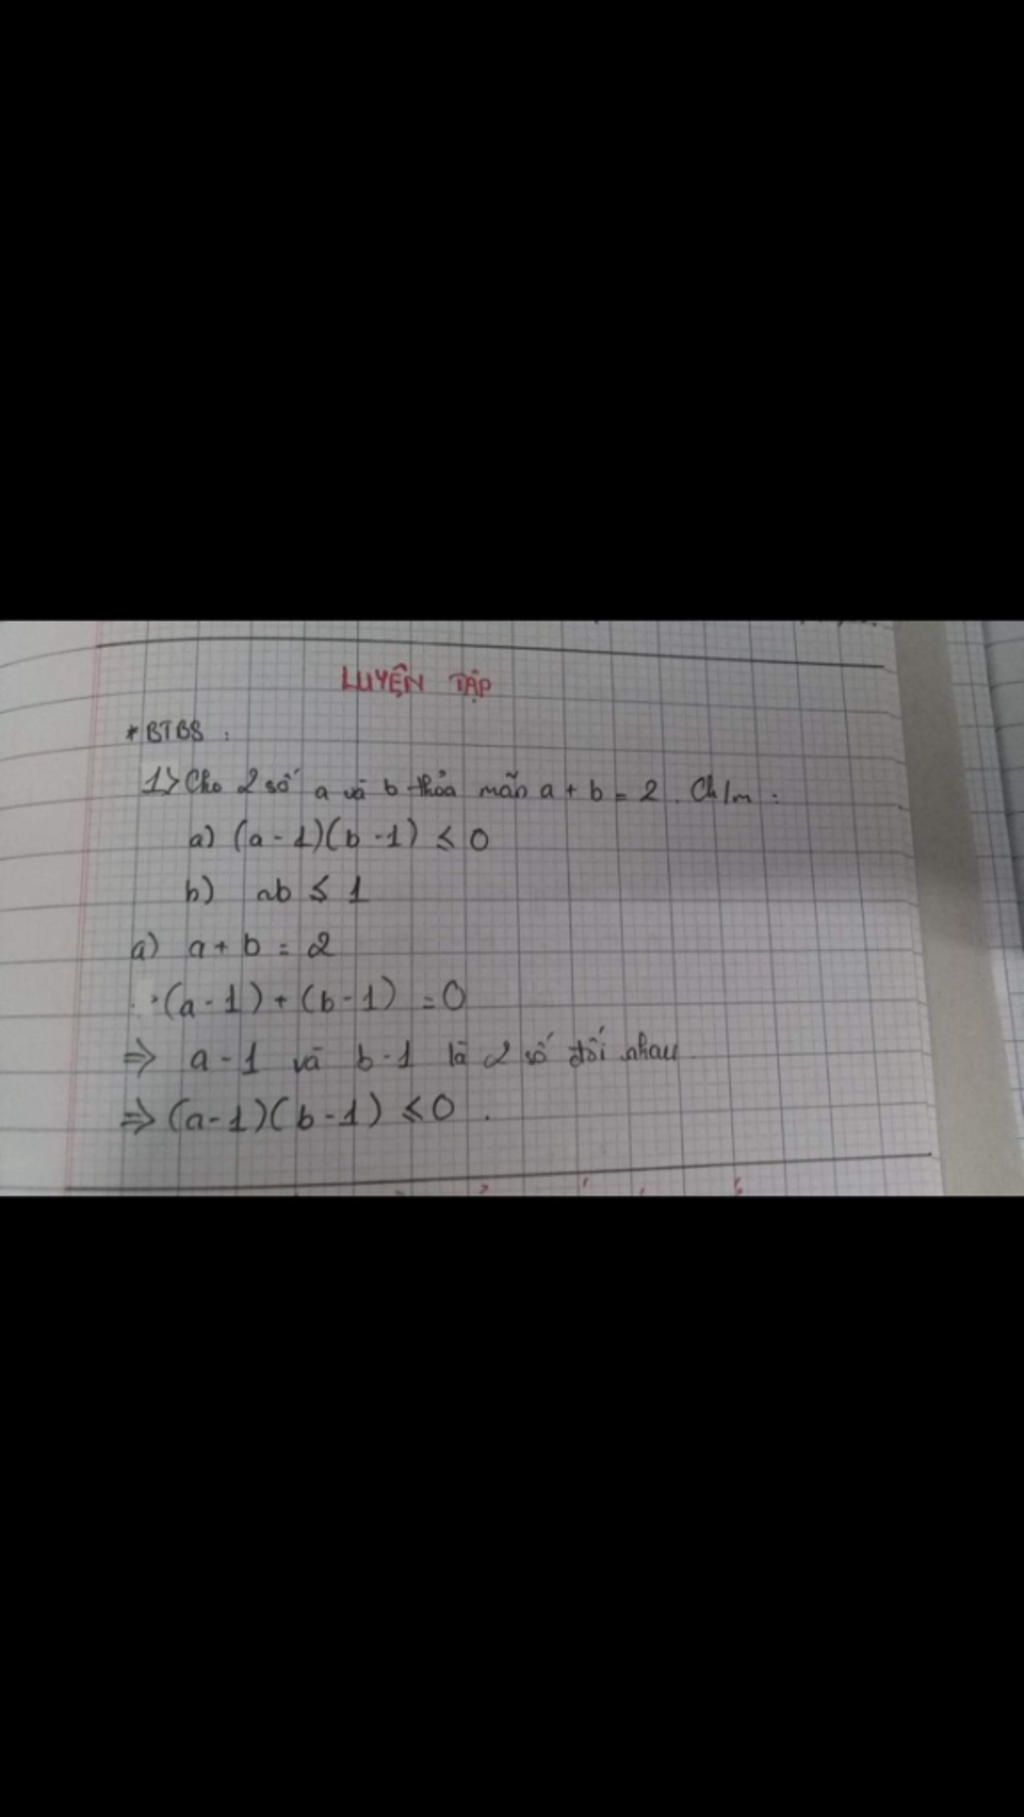 LUYỆN TẬP
* BTBS :
1> Cho 2 số a và b thỏa mãn a + b = 2. Ch/m :
a) (a - 1)(b - 1) ≤ 0
b) ab ≤ 1
a) a + b = 2
(a - 1) + (b - 1) = 0
=> a - 1 và b - 1 là 2 số đối nhau
=> (a - 1)(b - 1) ≤ 0.